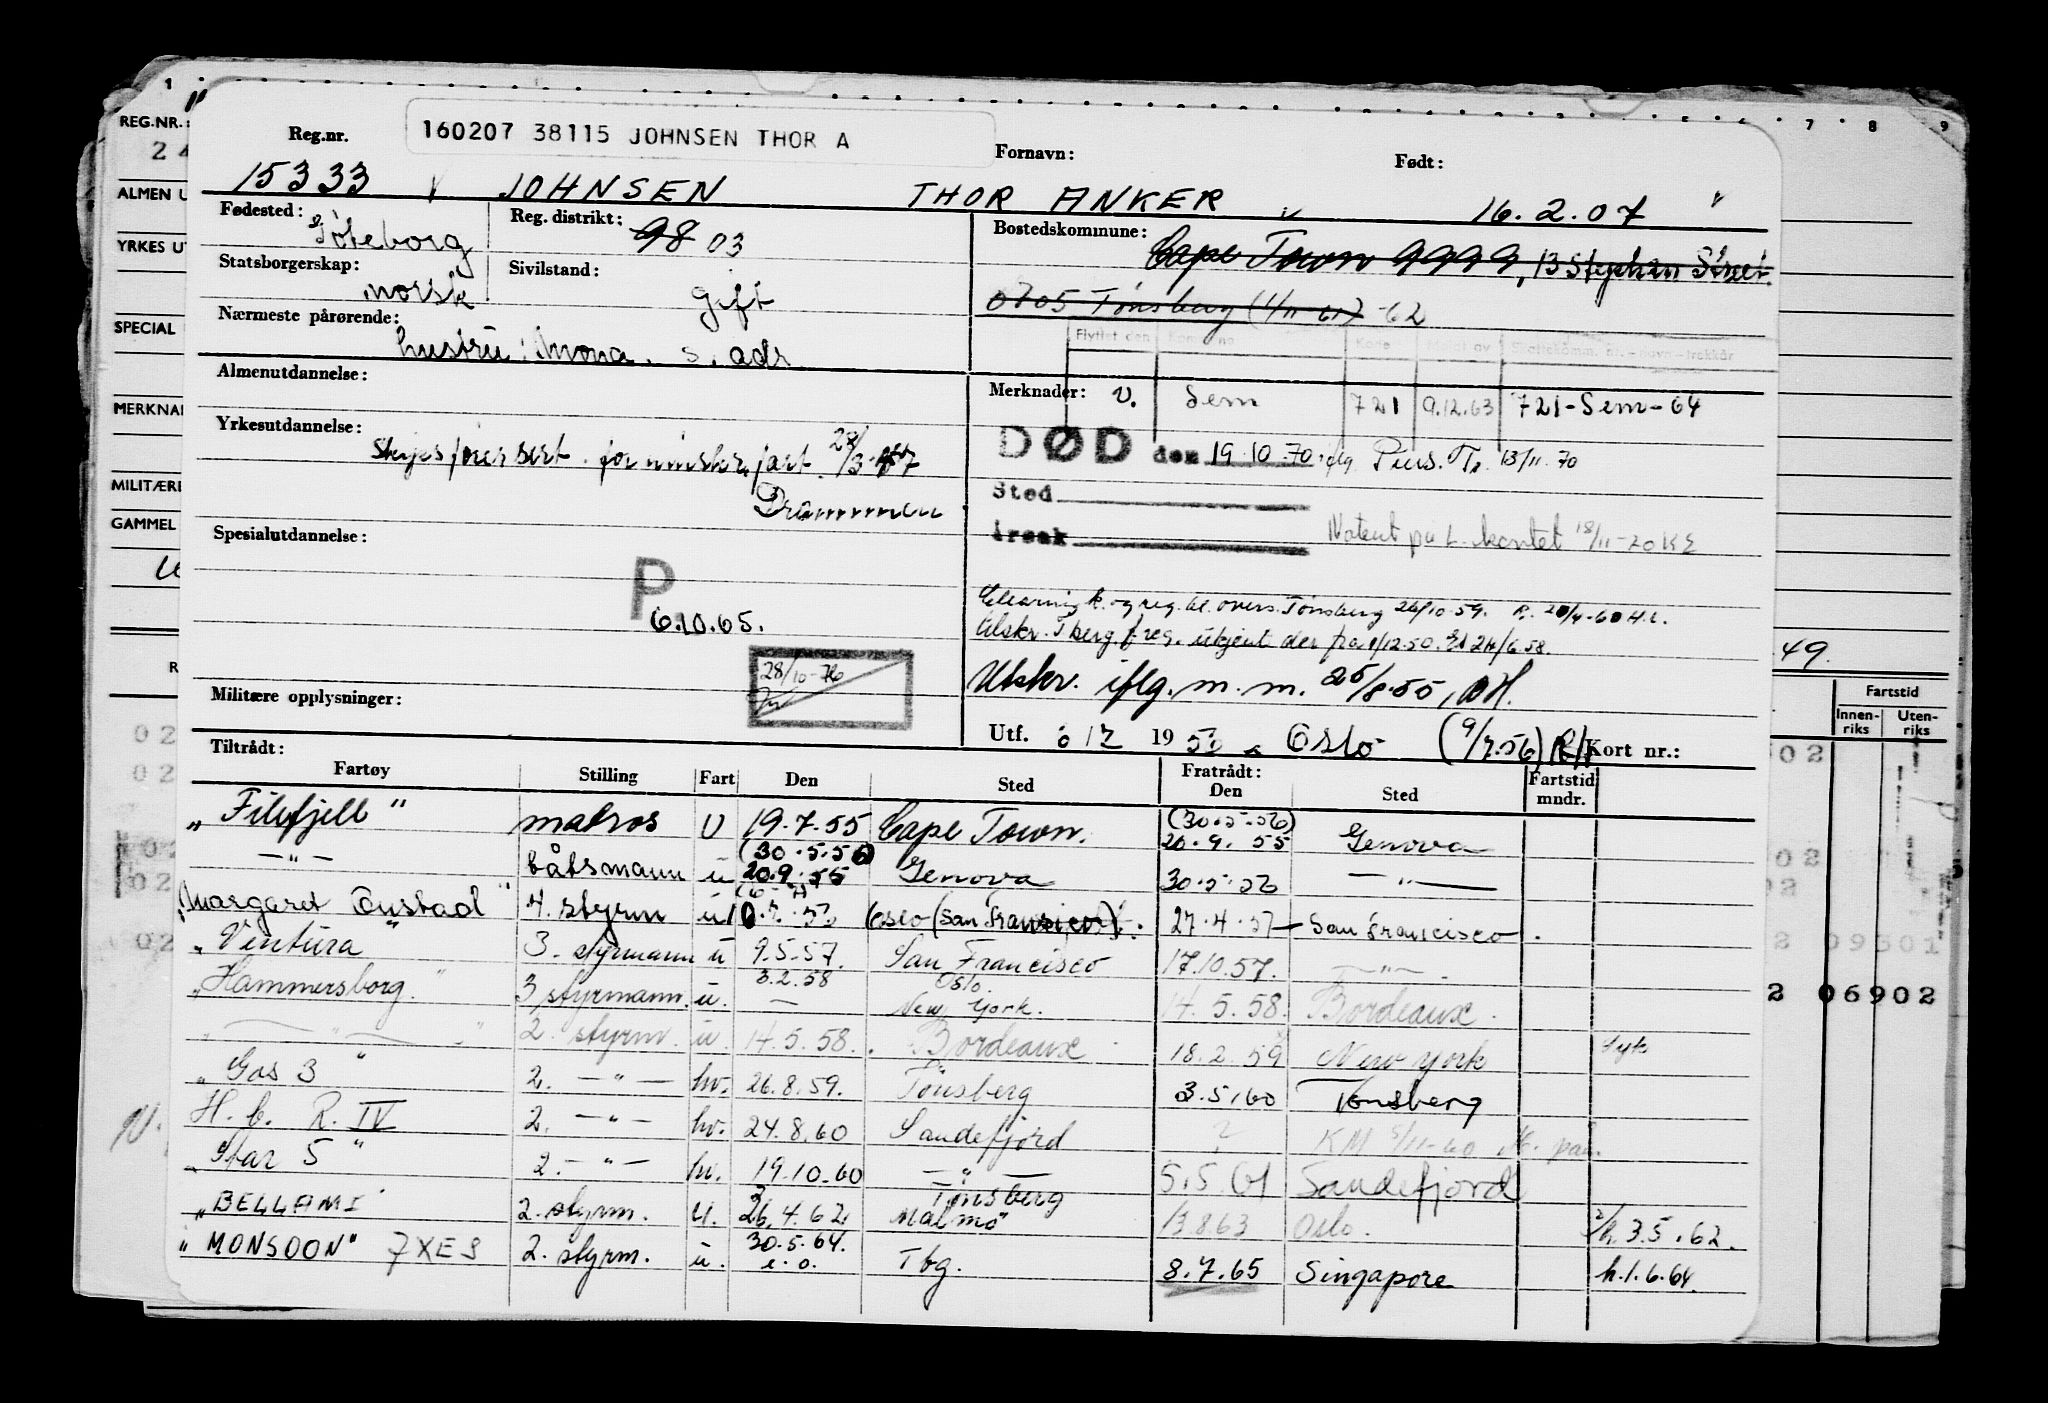 160207 38115 JOHNSEN THOR A
Reg.nr. Fornavn: Født:
15333 JOHNSEN THOR ANKER 16.2.07
Fødested: Göteborg Reg. distrikt: 98 03 Bostedskommune: Cape Town 9999, 13 Stephan Street
Statsborgerskap: norsk Sivilstand: Gift
0705 Tønsberg (1/11-61) -62
Nærmeste pårørende: hustru: Mona. s. adr.
Flyttet den
Almenutdannelse: Merknader: v. Sem 721 9.12.63 721-Sem-64
Yrkesutdannelse: 28/3-47
Drammen
DØD den 19.10.70 iflg. Pens. Tr. 13/11.70
Sted
Årsak
Notert på L. kortet 18/11-70 KE
Spesialutdannelse:
P
6.10.65.
Clearing k. og reg. bl. overs. Tønsberg 26/10-59.
Utskr. iflg. m. m. 25/8-55,
28/10-76
Militære opplysninger:
Utf. 19 Oslo (9/7.56) Kort nr.:
Tiltrådt: Fratrådt:
Fartøy Stilling Fart Den Sted Den Sted Fartstid mndr.
"Filefjell" matros U 19.7.55 Cape Town. (30.5.56) 20.9.55 Genova
— " — båtsmann u (30.5.56) 20.9.55 Genova 30.5.56 — " —
"Margaret Onstad" 4. styrm u Oslo (San Fransisco) 27.4.57 San Francisco.
"Ventura" 3. styrmann u 9.5.57. San Francisco 17.10.57. — " —
"Hammersborg" 3 styrmann. u. 3.2.58 — Oslo. New York. 14.5.58. Bordeaux.
— " — 2. styrm. u. 14.5.58. Bordeaux 18.2.59 New York Syk
"Gos 3" 2. — " — hv. 26.8.59. Tønsberg 3.5.60 Tønsberg
H. b. R. IV 2. — " — hv. 24.8.60 Sandefjord ? KM 5/11-60
"Star 5" 2. — " — hv. 19.10.60 — " — 5.5.61 Sandefjord
"BELLAMI" 2. styrm. u. 26.4.62 Tønsberg Malmö 13.8.63 Oslo. 3.5.62.
"MONSOON" 7XES 2. styrm. u. 30.5.64. e.o. Tbg. 8.7.65 Singapore h.1.6.64.
REG.NR.:
24
ALMEN U
YRKES UT
SPECIAL
MERKNAD
MILITÆRE
GAMMEL
1 7 8 9
49.
Fartstid
Innenriks Utenriks
02
02
02
02
09301
2 06902